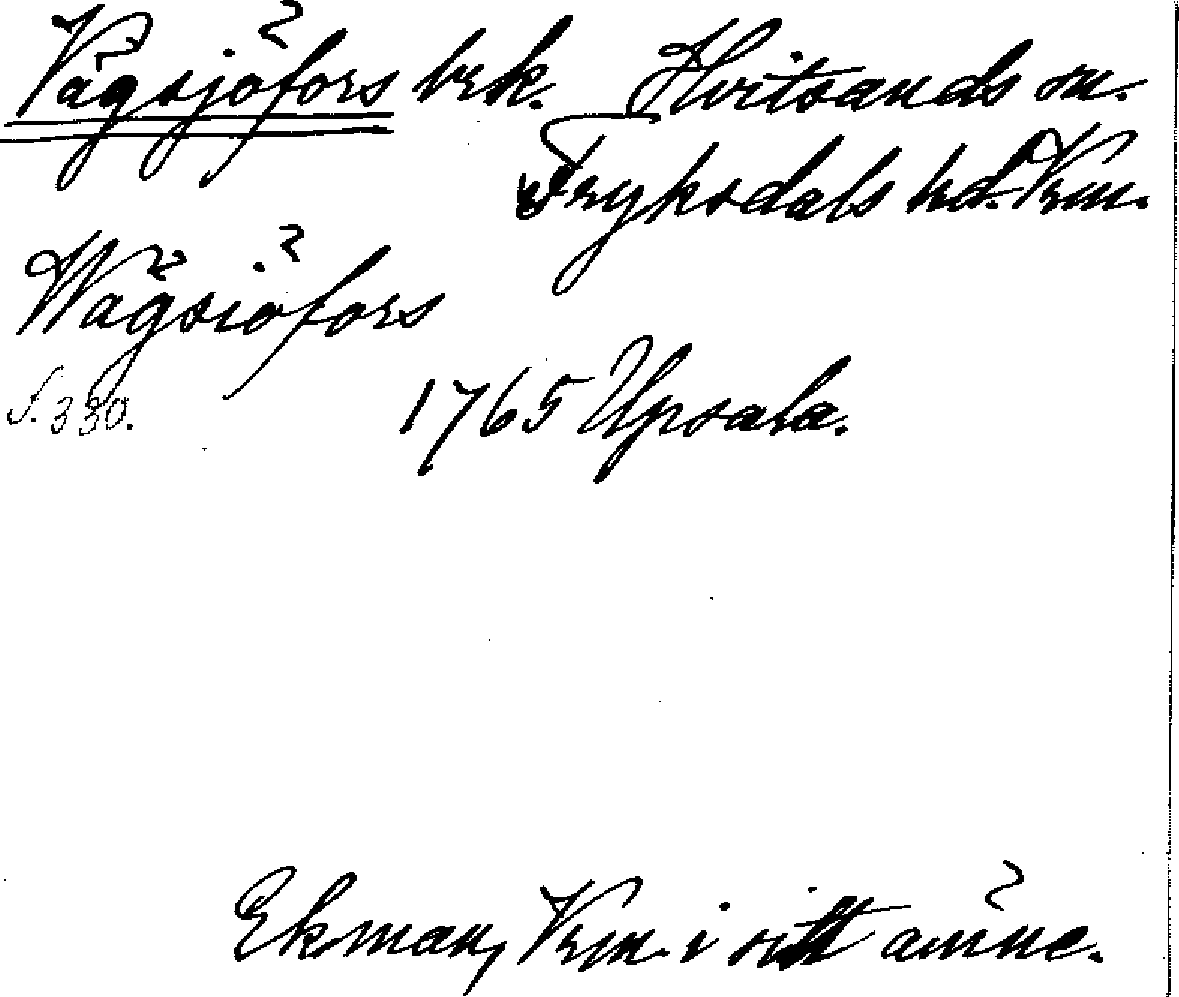 Vågsjöfors brk. Hvitsands sn.
Fryksdals hd. Vrm.
Wågsiöfors
S. 330.
1765 Upsala.
Ekman, Vrm. i sitt ämne.